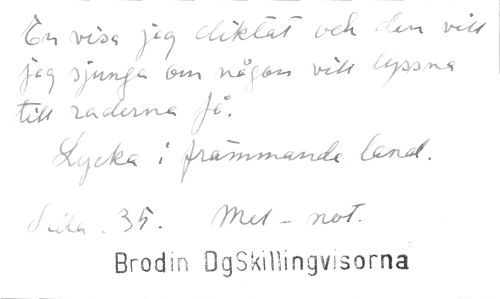 En visa jag diktat och den vill
jag sjunga om någon vill lyssna
till raderna få.
Lycka i främmande land.
Sida. 35. Mel - not.
Brodin DgSkillingvisorna